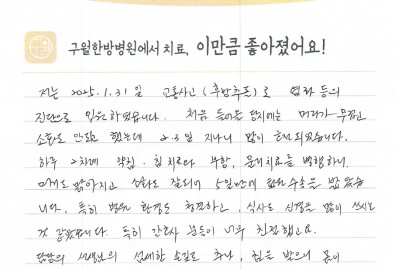 구월한방병원에서 치료, 이만큼 좋아졌어요!
저는 2025.1.31일 교통사고(후방추돌)로 염좌 등의
진단으로 입원하였습니다. 처음 들어올 당시에는 머리가 무겁고
소화도 안되고 했는데 2-3일 지나니 많이 호전되었습니다.
하루 2차례 약침, 침 치료와 부항, 물리치료를 병행하니
맑아지고 소화도 잘되어 5일만에
니다. 특히 병원 환경도 청결하고, 식사도 신경을 많이 쓰시는
것 같았습니다. 특히 간호사 분들이 너무 친절했고요.
섬세한 손길로 추나, 침을 받으니 몸이